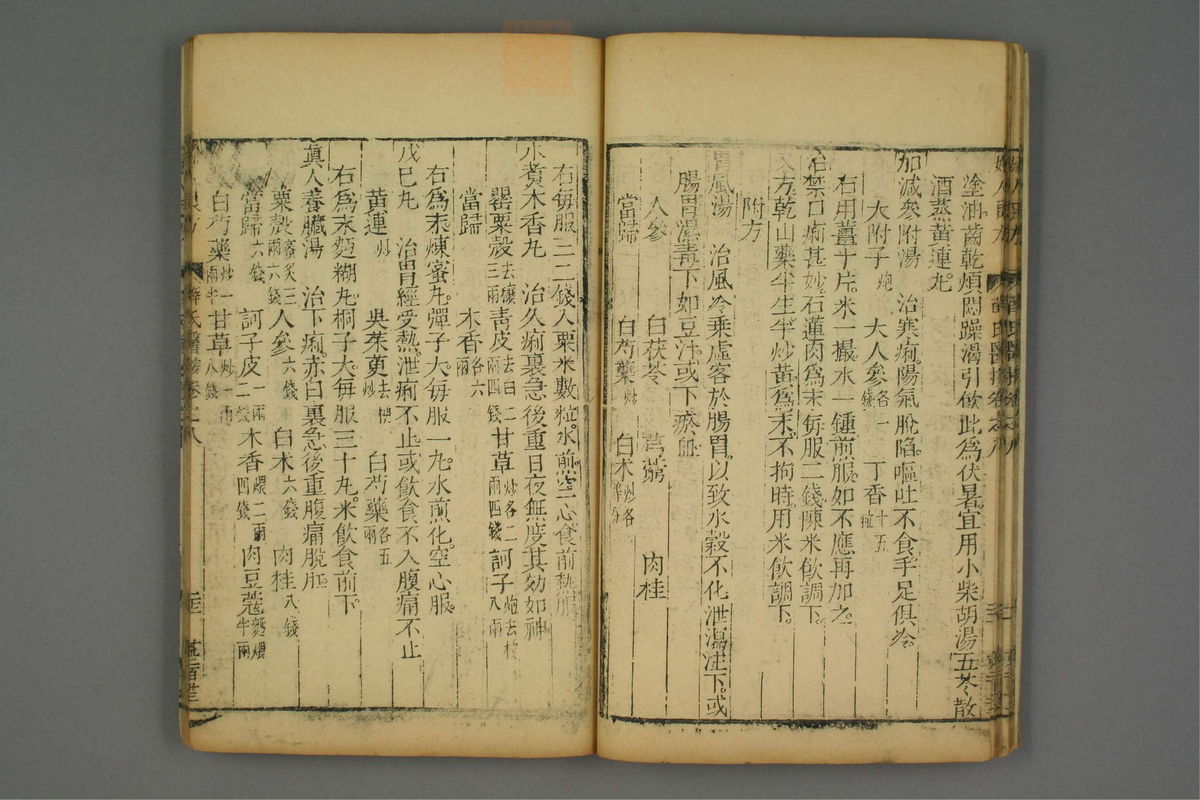 塗油齒乾煩悶躁渴引飲此為伏暑宜用小柴胡湯五苓散
酒蒸黃連丸
加減參附湯　治寒痢陽氣脫陷嘔吐不食手足俱冷
大附子炮　大人參各一錢　丁香十五粒
右用薑十片米一撮水一鍾煎服如不應再加之
治禁口痢甚妙石蓮肉為末每服二錢陳米飲調下
又方乾山藥半生半炒黃為末不拘時用米飲調下
附方
胃風湯　治風冷乘虛客於腸胃以致水穀不化泄瀉注下或
腸胃濕毒下如豆汁或下瘀血
人參　白茯苓　芎藭　肉桂
當歸　白芍藥炒　白朮炒各等分
右每服二三錢入粟米數粒水煎空心食前熱服
水煑木香丸　治久痢裏急後重日夜無度其効如神
罌粟殼去穰三兩　青皮去白二兩四錢　甘草炒各二兩四錢　訶子炮去核八兩
當歸　木香各六兩
右為末煉蜜丸彈子大每服一丸水煎化空心服
戊巳丸　治胃經受熱泄痢不止或飲食不入腹痛不止
黃連炒　吳茱萸去梗炒　白芍藥各五兩
右為末麪糊丸桐子大每服三十丸米飲食前下
真人養臟湯　治下痢赤白裏急後重腹痛脫肛
粟殼蜜炙三兩六錢　人參六錢　白朮六錢　肉桂八錢
當歸六錢　訶子皮一兩二錢　木香煨二兩四錢　肉豆蔻麪煨半兩
白芍藥炒一兩半　甘草炒一兩八錢